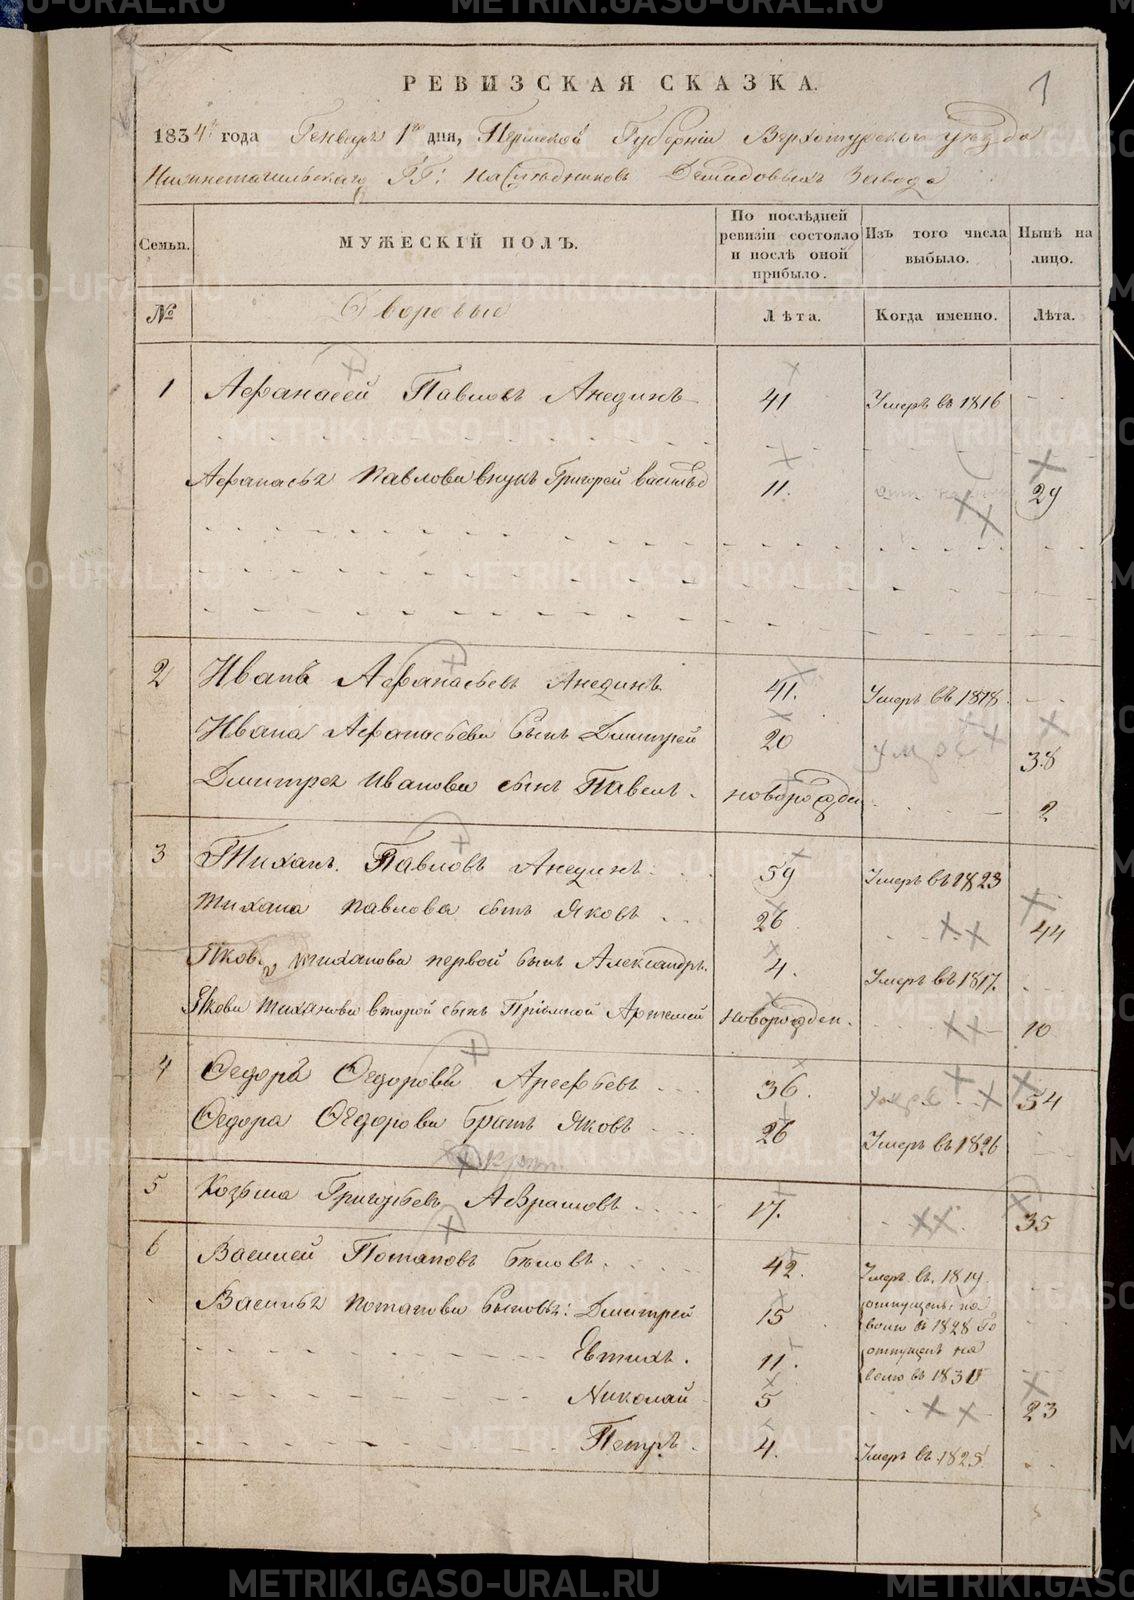 РЕВИЗСКАЯ СКАЗКА.
1
1834го года Генваря 1го дня, Пермской Губернии Верхотурского уезда
Нижнетагильского ГГ: Наследниковъ Демидовыхъ Завода
Семьи. МУЖЕСКІЙ ПОЛЪ. По послѣдней ревизіи состояло и послѣ оной прибыло. Изъ того числа выбыло. Нынѣ на лицо.
№ Дворовые Лѣта. Когда именно. Лѣта.
1 Афанасей Павловъ 41 Умеръ въ 1816
Афанасья Павлова внукъ Григорей Васильев 11. 29
2 Иванъ Афанасьевъ 41. Умеръ въ 1818.
Ивана Афанасьева сынъ Дмитрей 20 умре 38
Дмитрея Иванова сынъ Павелъ. новорожден 2
3 Тиханъ Павловъ 59 Умеръ въ 1823
Тихана Павлова сынъ Яковъ 26 44
Якова Тиханова первой сынъ Александръ. 4. Умеръ въ 1817.
Якова Тиханова второй сынъ Пріемной Артемей новорожден. 10
4 Федоръ Федоровъ Арефьевъ 36. умре 54
Федора Федорова братъ Яковъ 26 Умеръ въ 1826
5 Козьма Григорьевъ Абрамовъ 17. 35
6 Василей Потаповъ Бѣловъ. 42. Умеръ въ 1819.
Василья Потапова сыновья: Дмитрей 15 отпущенъ на волю въ 1828 го
Евтихъ. 11. отпущенъ на волю въ 1831
Николай 5 23
Петръ. 4. Умеръ въ 1825
METRIKI.GASO-URAL.RU